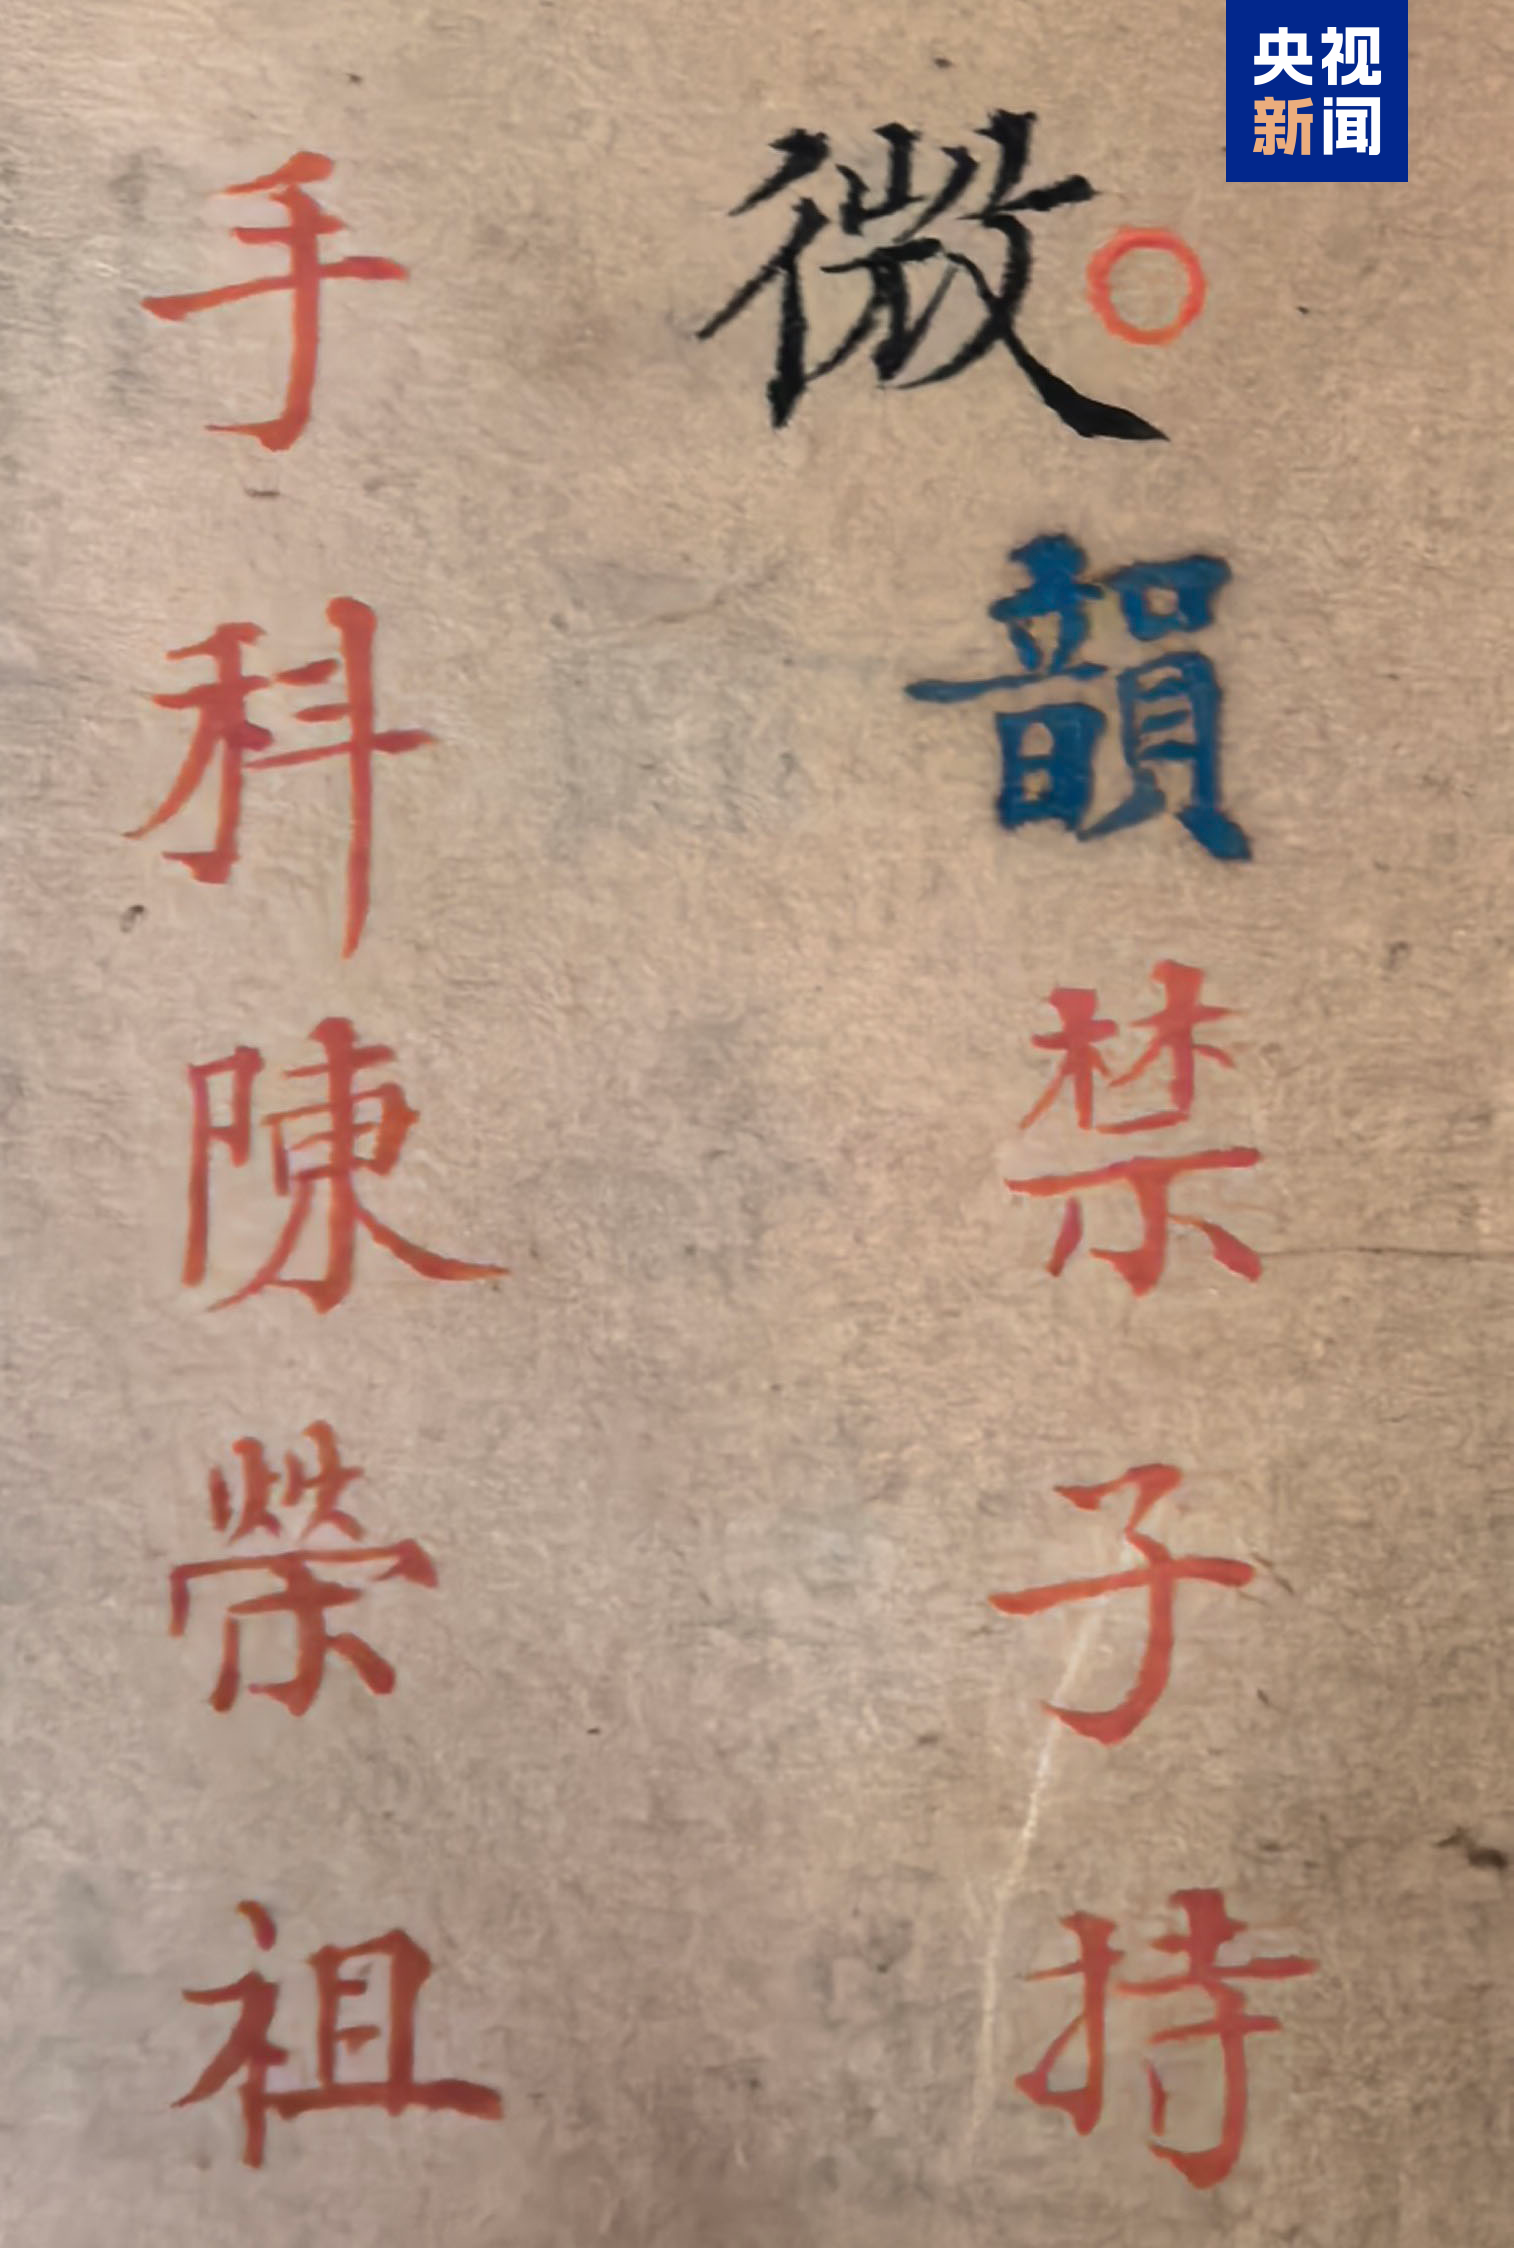 央视
新闻
微○
韻禁子持
手科陳榮祖